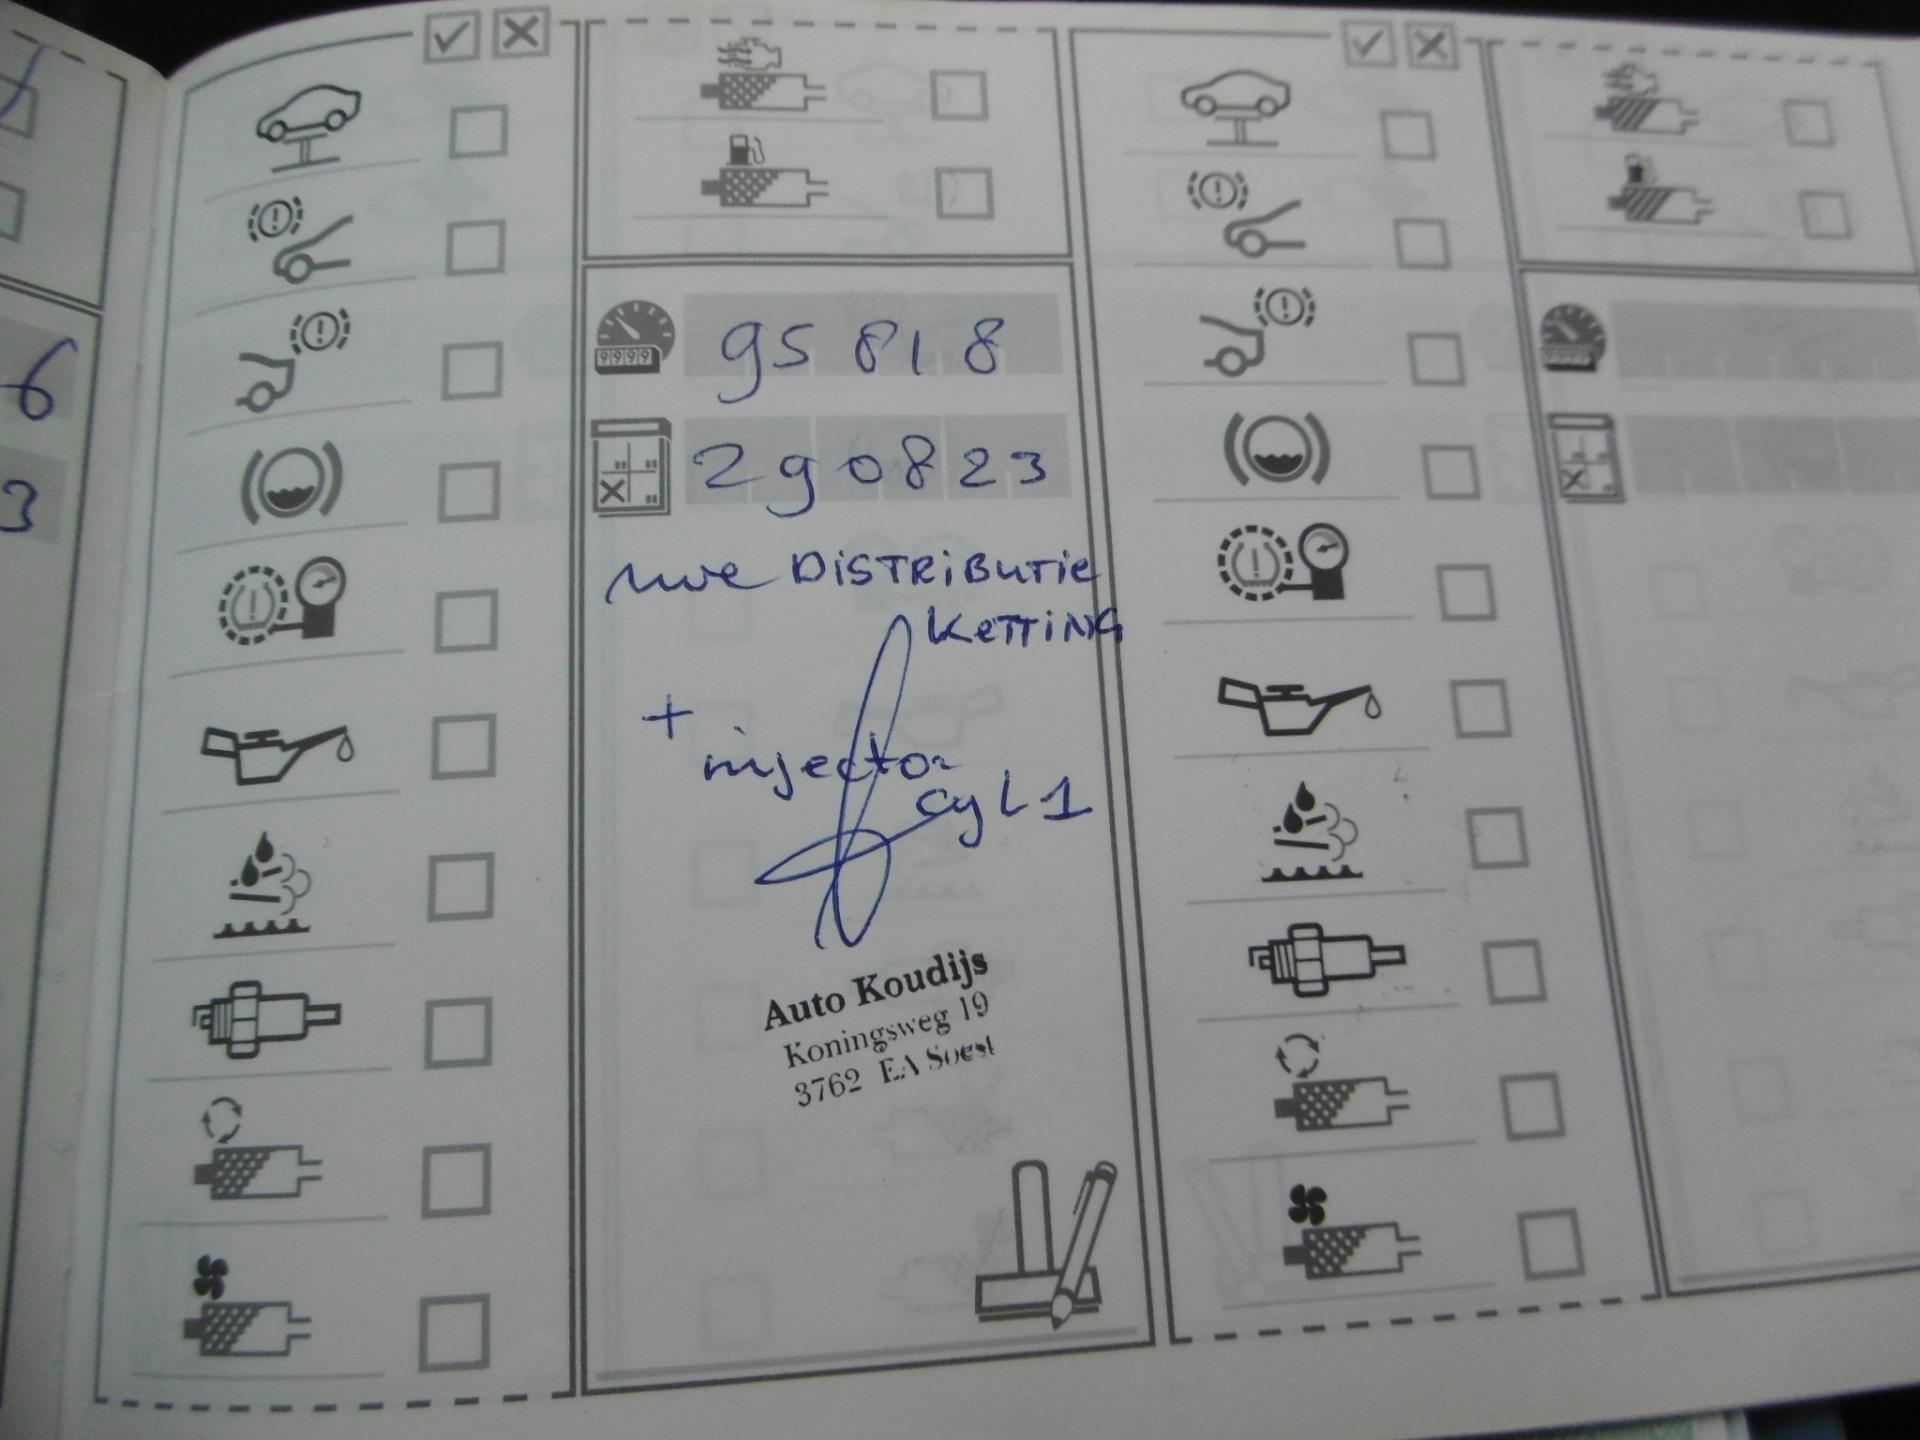 6
3
95818
290823
nwe DISTRIBUTIE
KETTING
+
injector
cyl 1
Auto Koudijs
Koningsweg 19
3762 EA Soest